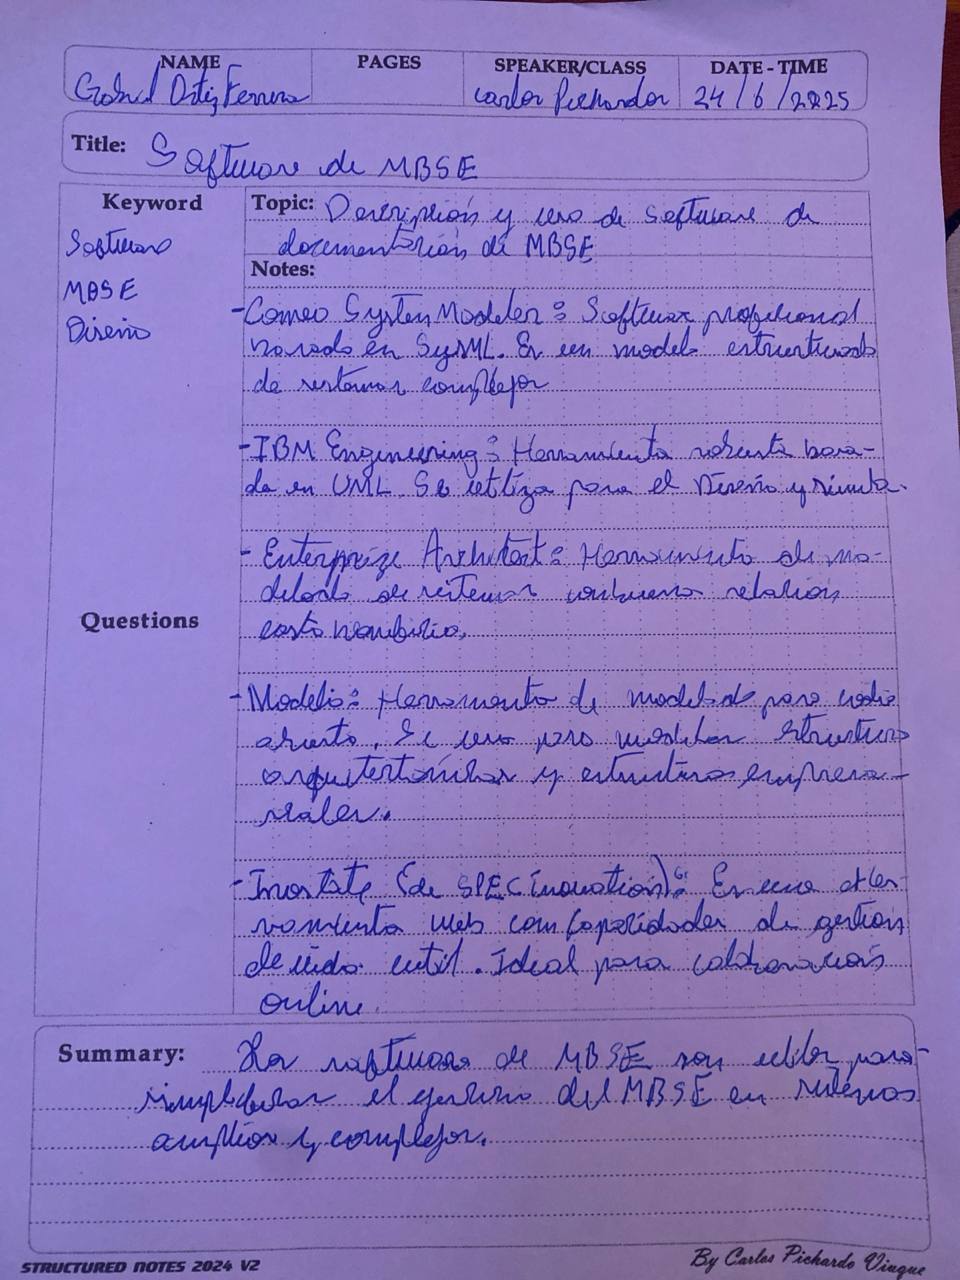 NAME
PAGES
SPEAKER/CLASS
DATE - TIME
Gabriel Ortiz Ferrera
Carlos Pichardor
24 / 6 / 2025
Title: Software de MBSE
Keyword
Software
MBSE
Diseño
Topic: Descripción y uso de Software de
documentación de MBSE
Notes:
-Cameo System Modeler: Software profecional
basado en SysML. Es un modelo estructurado
de sistemas complejos
-IBM Engineering: Herramienta robusta basa-
da en UML. Se utiliza para el Diseño y simula.
- Enterprize Architect: Herramienta de mo-
delado de sistemas con buena relation
costo beneficio.
Questions
-Modelio: Herramienta de modelado para codio
abierto. Se usa para modelar structura
y estructuras empresa-
riales.
-Inostate (de SPEC Inovation): Es una
web com capacidades de gestion
de util. Ideal para colaboración
online.
Summary: Los software de MBSE son utiles para
el del MBSE en sistemas
amplios y complejos.
STRUCTURED NOTES 2024 V2
By Carlos Pichardo Viuque